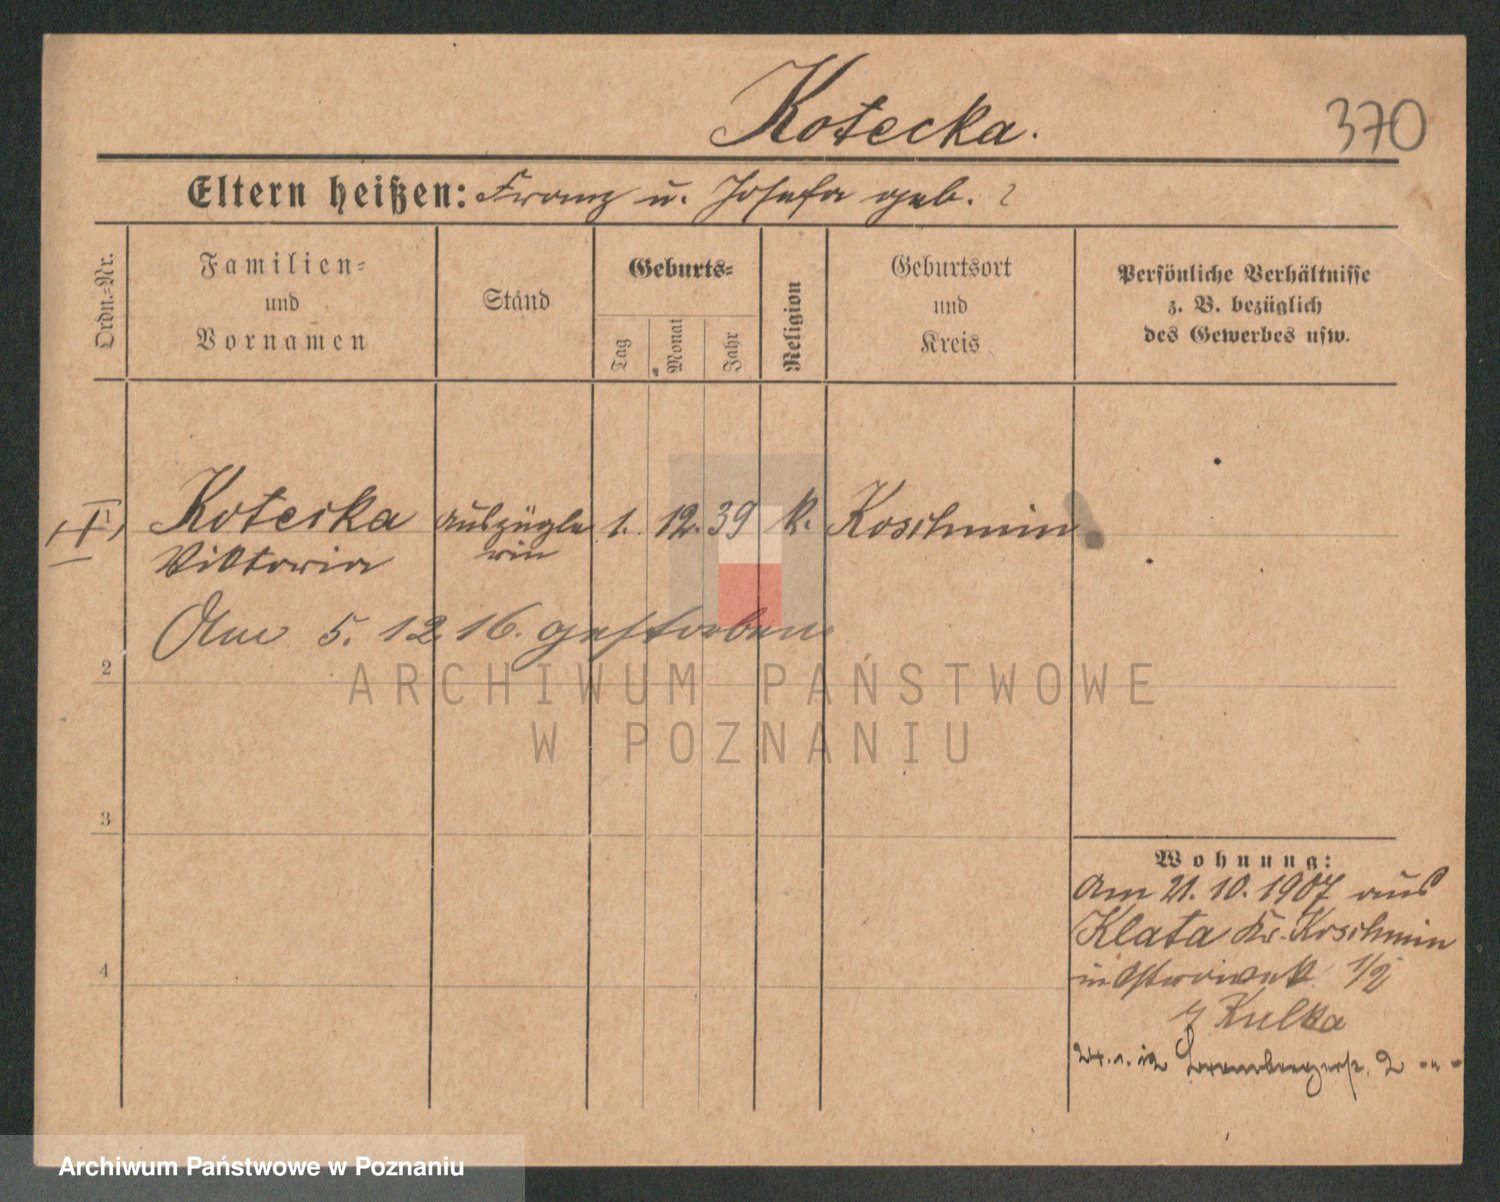 Kotecka.
370
Eltern heißen: Franz u. Josefa geb. ?
Ordn.-Nr.
Familien-
und
Vornamen
Stand
Geburts-
Tag
Monat
Jahr
Religion
Geburtsort
und
Kreis
Persönliche Verhältnisse
z. B. bezüglich
des Gewerbes usw.
1
Kotecka Auszügle 1. 12. 39 k. Koschmin
Viktoria rin
Am 5. 12 16. gestorben
2
ARCHIWUM PAŃSTWOWE
W POZNANIU
3
Wohnung:
Am 21. 10. 1907 aus
Klata Kr. Koschmin
in 1/2
Kulka
4
24. 1. 12 2
Archiwum Państwowe w Poznaniu